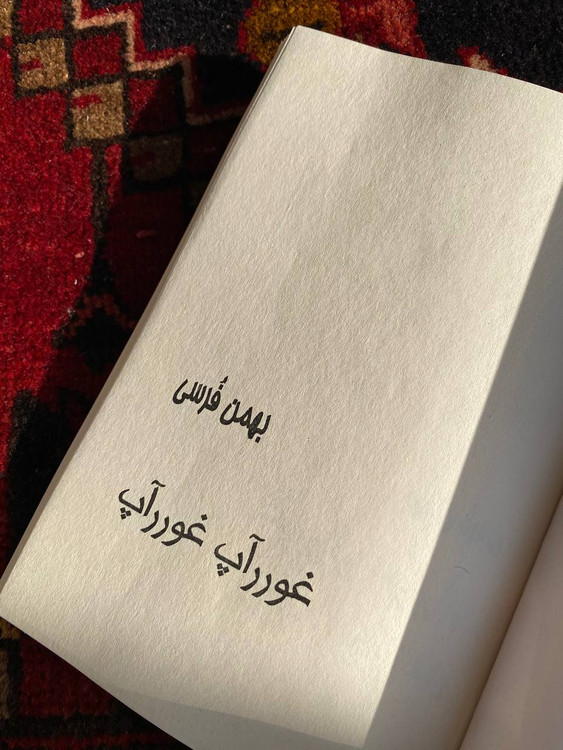 بهمن فُرسی
غوررآپ غوررآپ